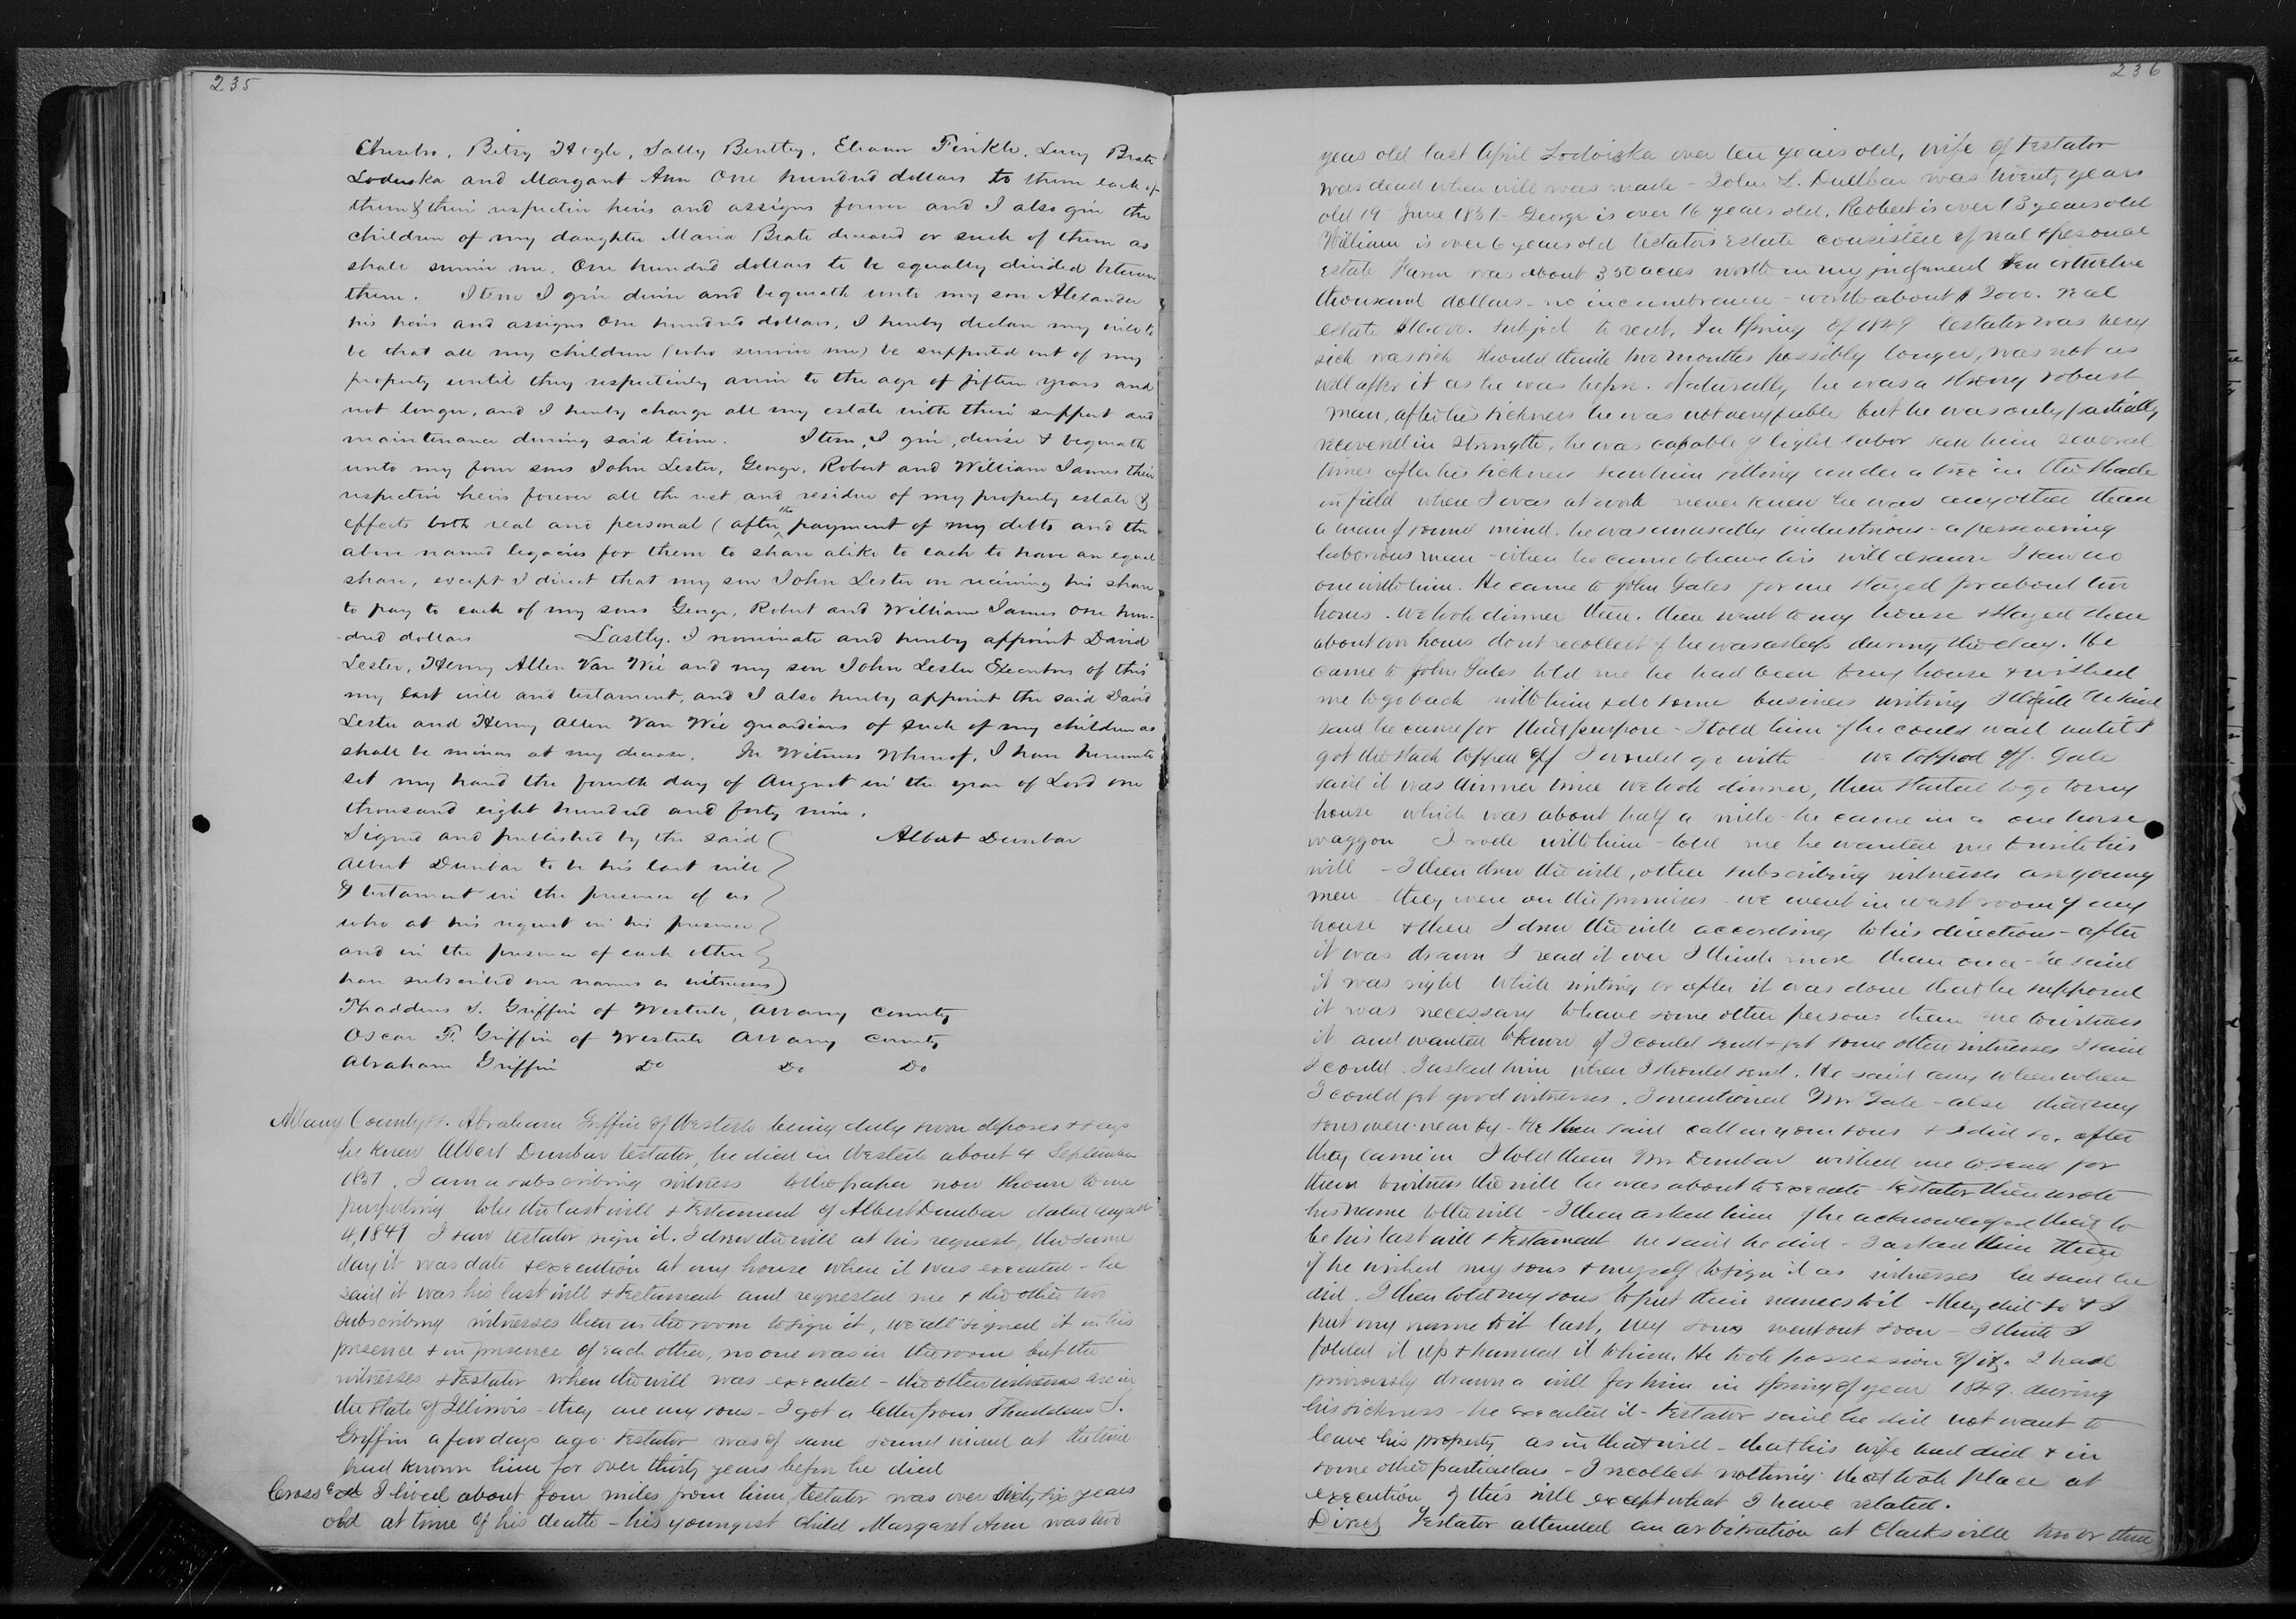 235
Betsy Hogle, Sally Bentley, Eleanor Finkle, Lucy Brate
Loduska and Margaret Ann One hundred dollars to them each of
them & their respective heirs and assigns forever and I also give the
children of my daughter Maria Brate deceased or such of them as
shall survive me. One hundred dollars to be equally divided between
them. Item I give devise and bequeath unto my son Alexander
his heirs and assigns One hundred dollars, I hereby declare my will to
be that all my children (who survive me) be supported out of my
property until they respectively arrive to the age of fifteen years and
not longer, and I hereby charge all my estate with their support and
maintenance during said time. Item, I give, devise & bequeath
unto my four sons John Lester, George, Robert and William James their
respective heirs forever all the rest and residue of my property estate &
effects both real and personal (after the payment of my debts and the
above named legacies for them to share alike to each to have an equal
share, except I direct that my son John Lester on receiving his share
to pay to each of my sons George, Robert and William James One hun-
dred dollars Lastly. I nominate and hereby appoint David
Lester, Henry Allen Van Wie and my son John Lester Executors of this
my last will and testament, and I also hereby appoint the said David
Lester and Henry Allen Van Wie guardians of such of my children as
shall be minors at my decease. In Witness Whereof, I have hereunto
set my hand the fourth day of August in the year of Lord one
thousand eight hundred and forty nine.
Signed and published by the said Albert Dunbar
Albert Dunbar to be his last will
& testament in the presence of us
who at his request in his presence
and in the presence of each other
have subscribed our names as witnesses
Thaddeus S. Griffin of Westerlo, Albany County
Oscar F. Griffin of Westerlo Albany County
Abraham Griffin Do Do Do
Albany County ss. Abraham Griffin of Westerlo being duly sworn deposes & says
he knew Albert Dunbar testator, he died in Westerlo about 4 September
1851. I am a subscribing witness to the paper now shown to me
purporting to be the last will & testament of Albert Dunbar dated August
4, 1849 I saw testator sign it. I drew the will at his request, the same
day it was date & execution at my house when it was executed - he
said it was his last will & testament and requested me & the other two
subscribing witnesses then in the room to sign it, we all signed it in his
presence & in presence of each other, no one was in the room but the
witnesses & testator when the will was executed - the other witnesses are in
the State of Illinois - they are my sons - I got a letter from Thaddeus S.
Griffin a few days ago testator was of sane sound mind at the time
had known him for over thirty years before he died
Cross Ex I lived about four miles from him, testator was over sixty six years
old at time of his death - his youngest child Margaret Ann was two
236
years old last April Lodoiska over ten years old, wife of testator
was dead when will was made - John L. Dunbar was twenty years
old 19 June 1851 - George is over 16 years old. Robert is over 13 years old
William is over 6 years old testators Estate consisted of real & personal
Estate Farm was about 350 acres worth in my judgment ten or twelve
thousand dollars - no incumbrance - worth about $ 2000. real
estate $10.000. subject to rent, In Spring of 1849 testator was very
sick was sick should think two months possibly longer, was not as
well after it as he was before. Naturally he was a strong robust
man, after his sickness he was not very feeble but he was only partially
recovered in strength, he was capable of light labor saw him several
times after his sickness saw him sitting under a tree in the shade
in field where I was at work never knew he was any other than
a man of sound mind. he was unusually industrious - a persevering
laborious man - when he came to have his will drawn I saw no
one with him. He came to John Gales for me stayed for about two
hours. We took dinner there. then went to my house & stayed there
about two hours do not recollect if he was asleep during the day. He
came to John Gales told me he had been to my house & wished
me to go back with him & do some business writing I think he said
said he came for that purpose - I told him if he could wait until I
got the stack topped off I would go with - we topped off. Gale
said it was dinner time we took dinner, then started to go to my
house which was about half a mile - he came in a one horse
waggon I rode with him - told me he wanted me to write his
will - I then drew the will, other subscribing witnesses are young
men - they were on the premises - we went in west room of my
house & there I drew the will according to his directions - after
it was drawn I read it over I think more than once - he said
it was right while writing or after it was done that he supposed
it was necessary to have some other persons then me to witness
it and wanted to know if I could send & get some other witnesses I said
I could. I asked him when I should send. He said any when when
I could get good witnesses. I mentioned Mr Gale - also that my
sons were near by - He then said call in your sons & I did so. after
they came in I told them Mr Dunbar wished me to send for
them to witness the will he was about to execute - testator then wrote
his name to the will - I then asked him if he acknowledged that to
be his last will & testament he said he did - I asked him then
if he wished my sons & myself to sign it as witnesses he said he
did. I then told my sons to put their names to it - they did so & I
put my name to it last, my sons went out soon - I think I
folded it up & handed it to him. He took possession of it. I had
previously drawn a will for him in spring of year 1849 during
his sickness - he executed it - testator said he did not want to
leave his property as in that will - that his wife had died & in
some other particulars - I recollect nothing that took place at
execution of this will except what I have related.
Direct Testator attended an arbitration at Clarksville two or three